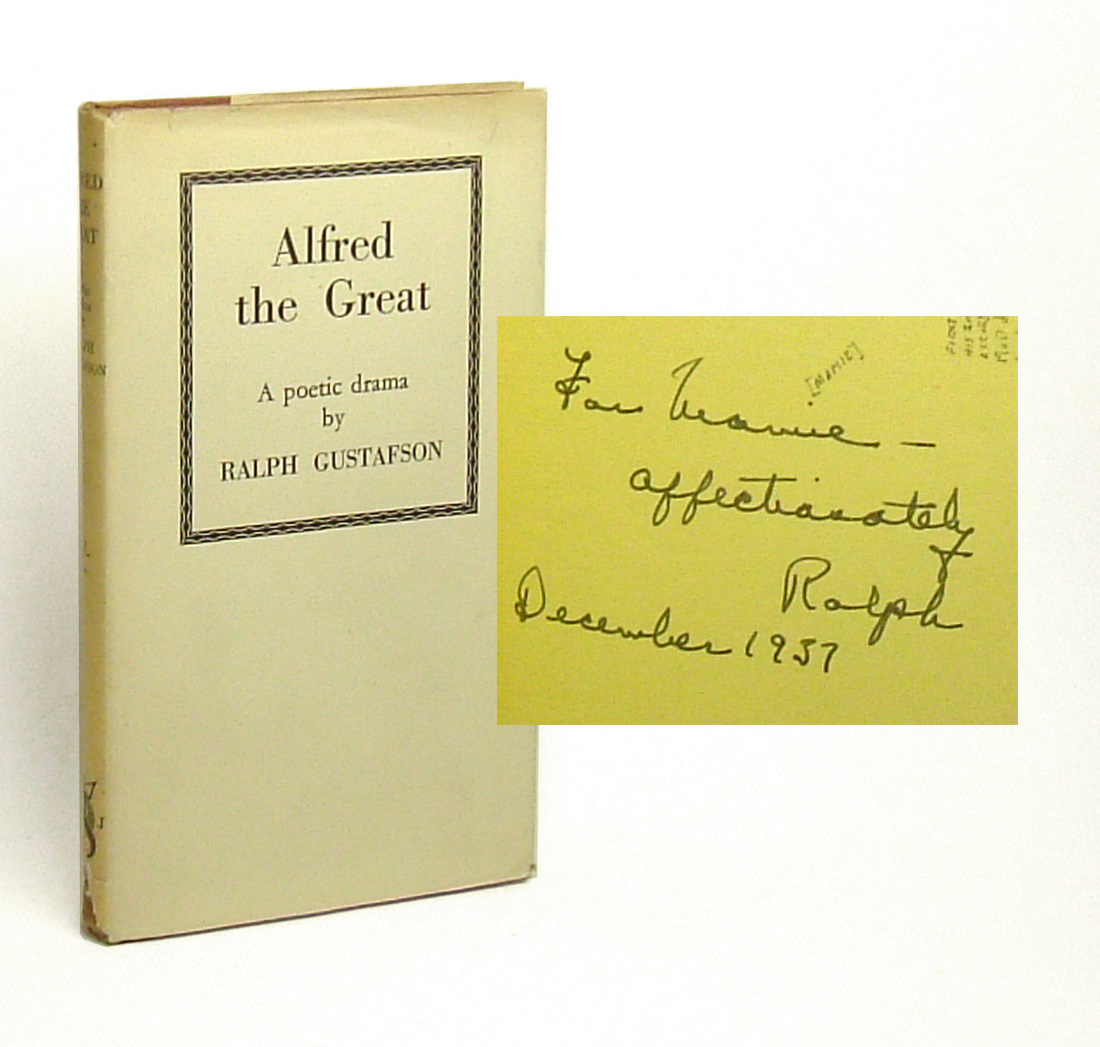 Alfred
the Great
A poetic drama
by
RALPH GUSTAFSON
For Mamie –
[MAMIE]
affectionately
Ralph
December 1937